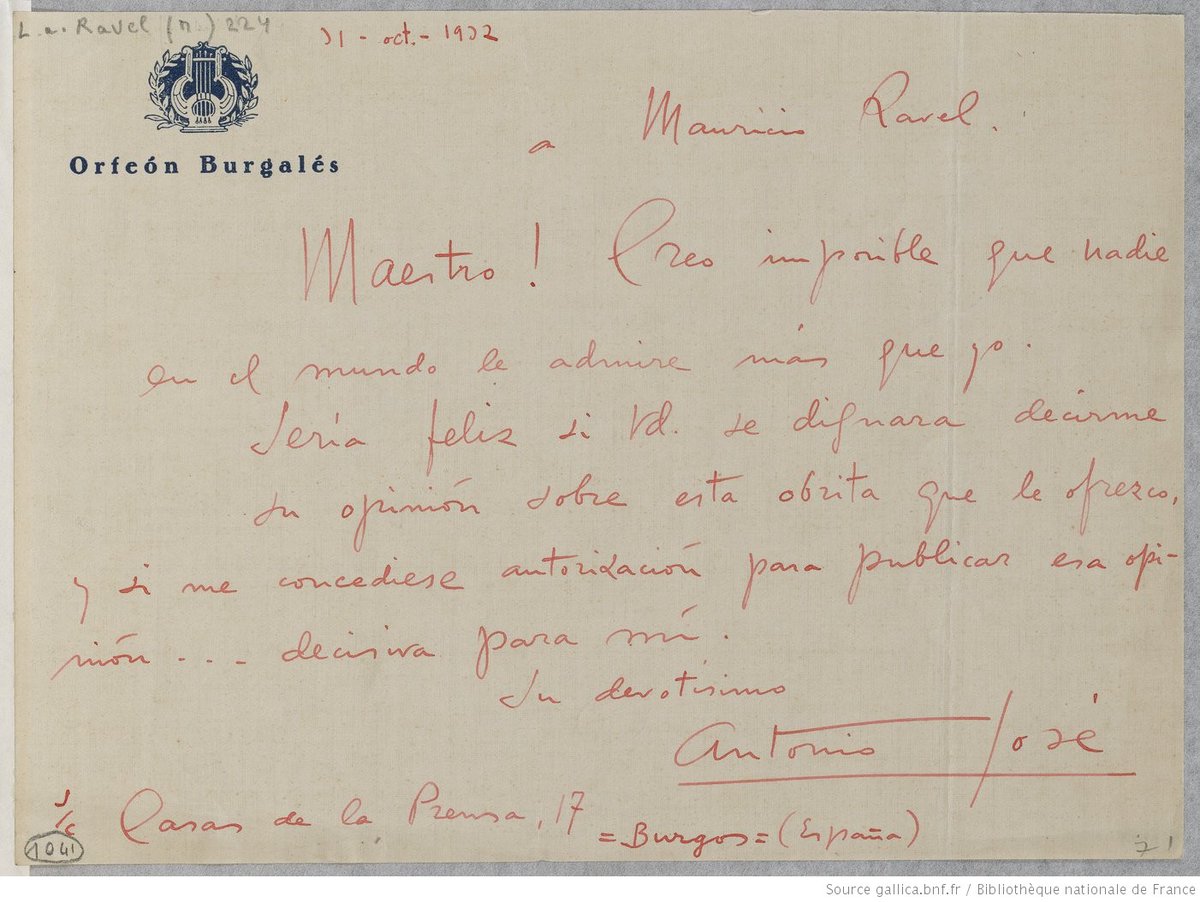 L. a. Ravel (M.) 224
31 - oct. - 1932
Orfeón Burgalés
a Mauricio Ravel.
Maestro! Creo imposible que nadie
en el mundo le admire más que yo.
Sería feliz si Vd. se dignara decirme
su opinión sobre esta obrita que le ofrezco,
y si me concediese autorización para publicar esa opi-
nión... decisiva para mí.
Su devotísimo
Antonio José
S/c Casas de la Prensa, 17 =Burgos= (España)
1041
71
Source gallica.bnf.fr / Bibliothèque nationale de France